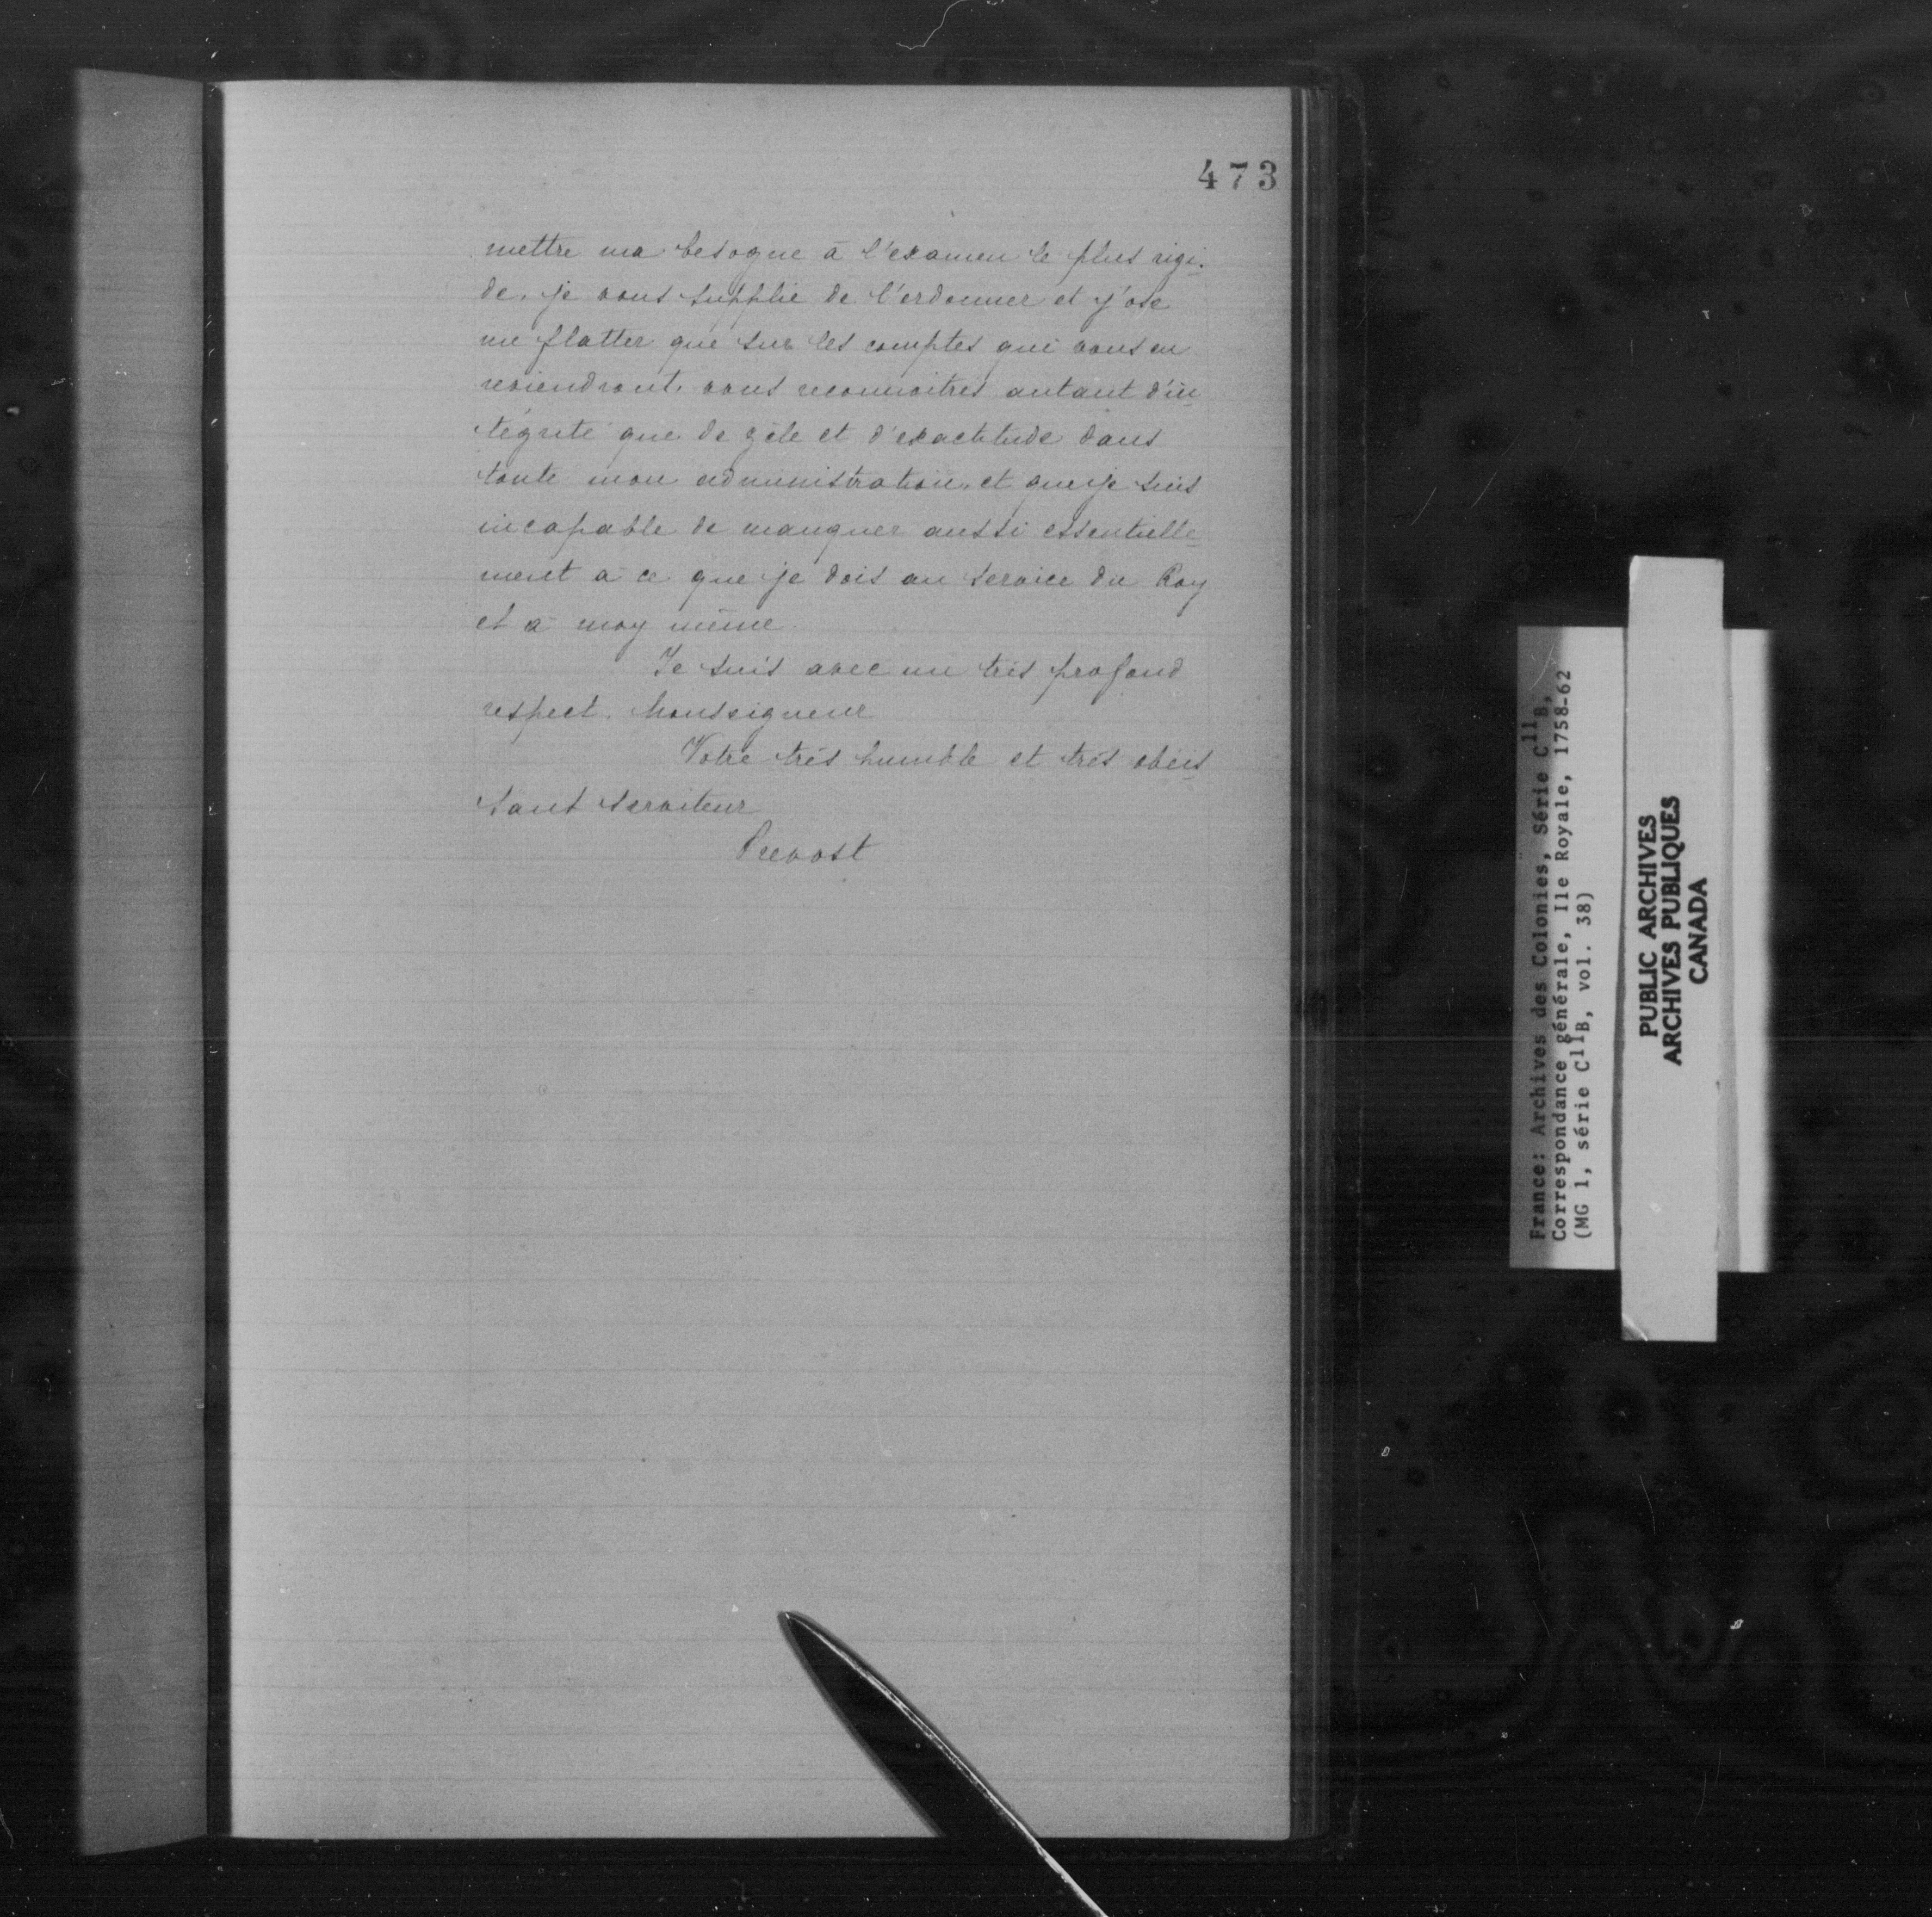 473
mettre ma besogne à l'examen le plus rigi-
de, je vous supplie de l'ordonner et j'ose
me flatter que sur les comptes qui vous en
reviendront, vous reconnoitres autant d'in
tégrité que de zèle et d'exactitude dans
toute mon administration, et que je suis
incapable de manquer aussi essentielle
ment à ce que je dois au service du Roy
et à moy même.
Je suis avec un très profond
respect. Monseigneur
Votre très humble et très obéis
sant serviteur
Prevost
France: Archives des Colonies, Série C11B,
Correspondance générale, Ile Royale, 1758-62
(MG 1, série C11B, vol. 38)
PUBLIC ARCHIVES
ARCHIVES PUBLIQUES
CANADA